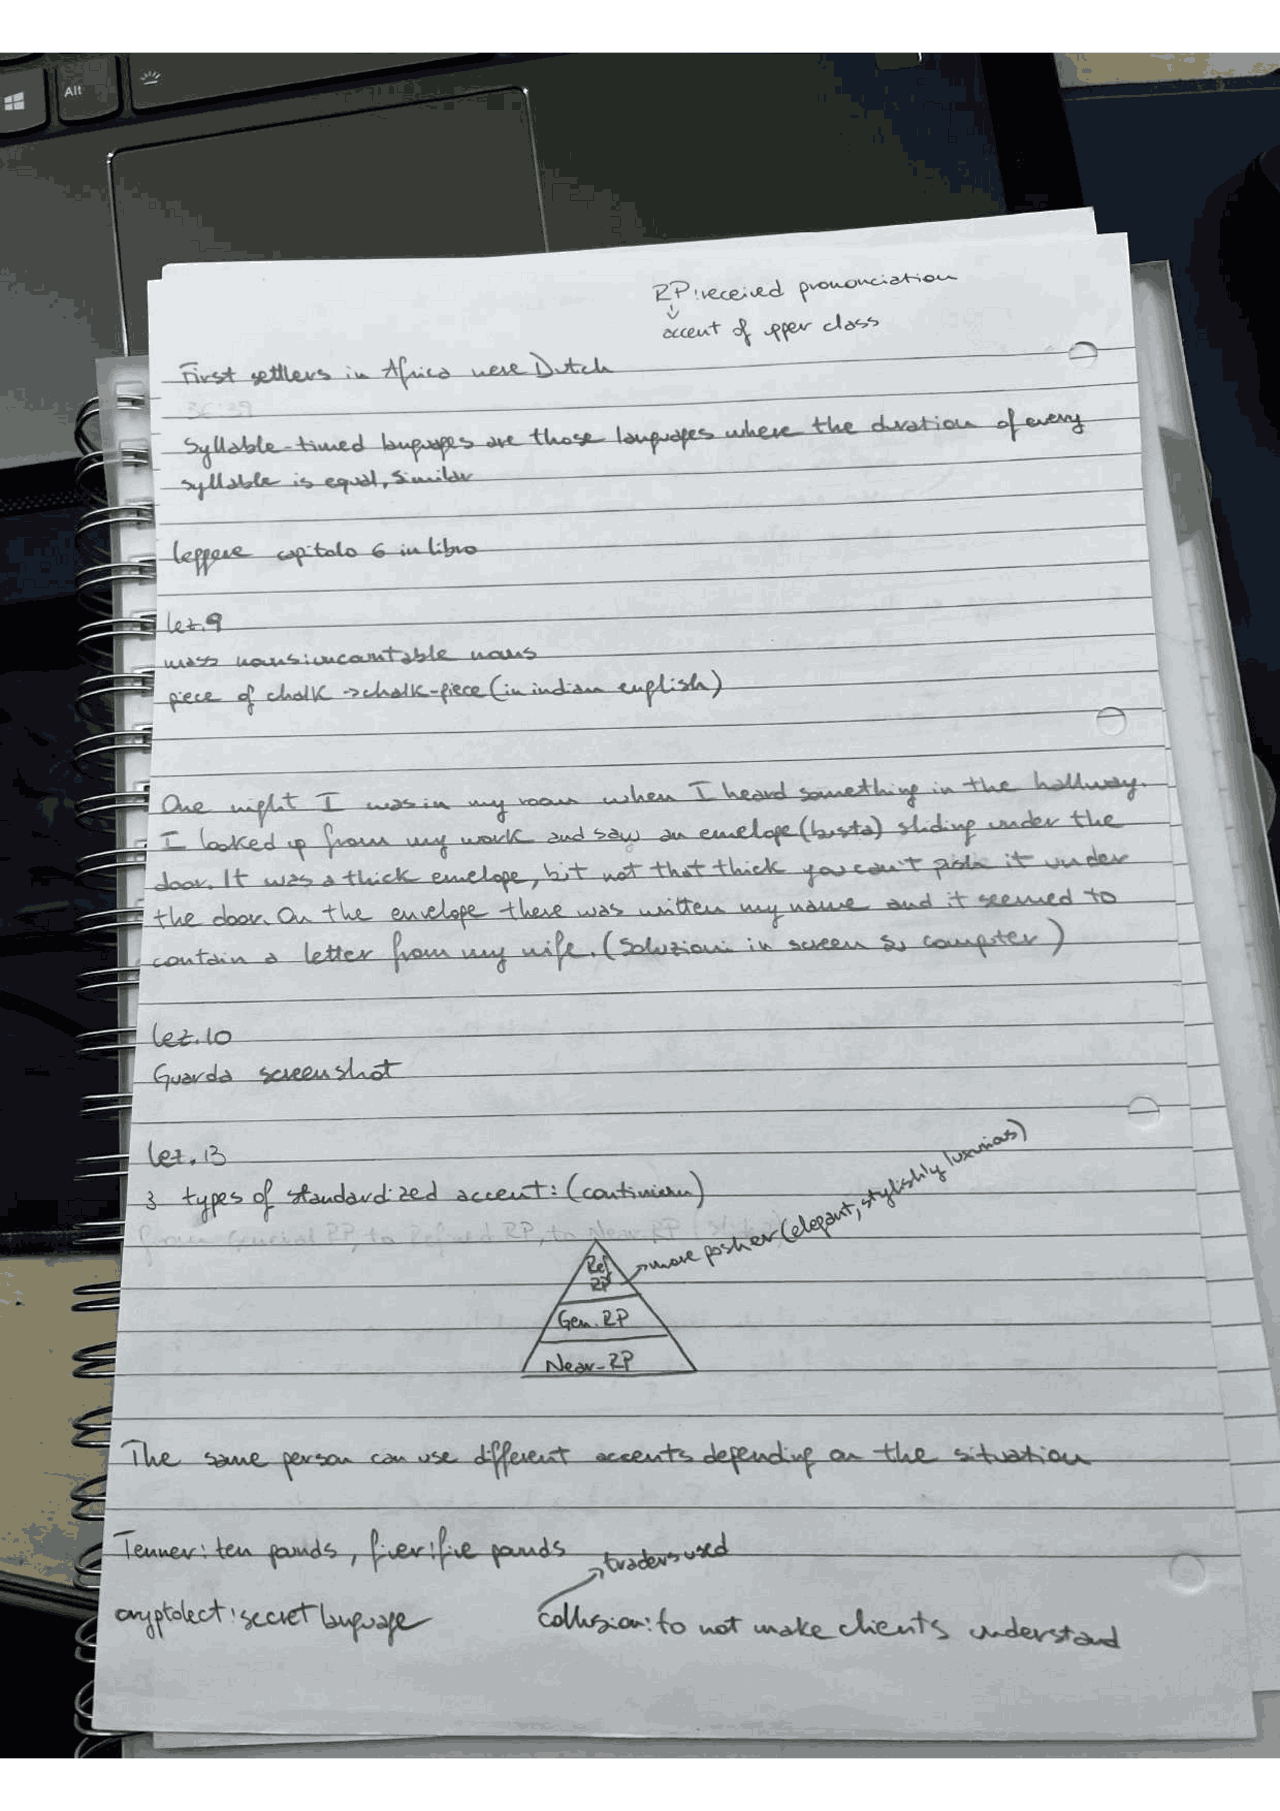 Alt
RP: received prononciation
↓
accent of upper class
First settlers in Africa were Dutch
36:39
Syllable-timed languages are those languages where the duration of every
syllable is equal, similar
leggere capitolo 6 in libro
lez. 9
mass nouns: uncountable nouns
piece of chalk → chalk-piece (in indian english)
One night I was in my room when I heard something in the hallway.
I looked up from my work and saw an envelope (busta) sliding under the
door. It was a thick envelope, but not that thick you can't push it under
the door. On the envelope there was written my name and it seemed to
contain a letter from my wife. (Soluzioni in screen su computer)
lez. 10
Guarda screenshot
lez. 13
3 types of standardized accent: (continuum)
from crucial RP, to Refined RP, to Near RP
Ref
RP
→ more posher (elegant, stylishly luxurious)
Gen. RP
Near-RP
The same person can use different accents depending on the situation
Tenner: ten pounds, fiver: five pounds
→ traders used
cryptolect: secret language
collusion: to not make clients understand